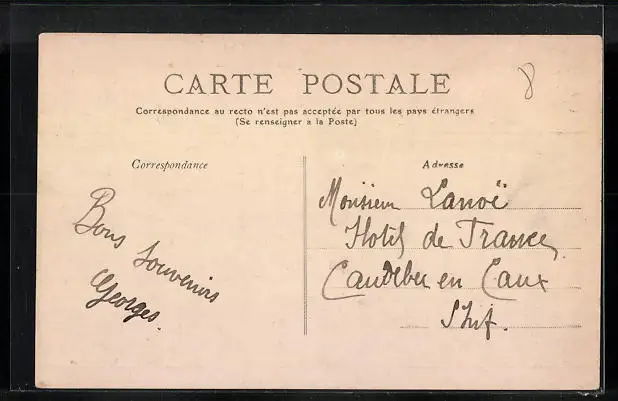 CARTE POSTALE
8
Correspondance au recto n'est pas acceptée par tous les pays étrangers
(Se renseigner à la Poste)
Correspondance
Bons souvenirs
Georges.
Adresse
Monsieur Lanoë
Hotel de France
Caudebec en Caux